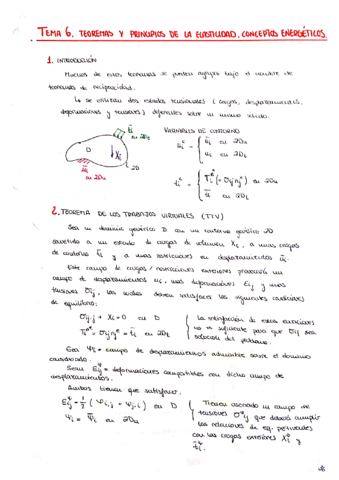 TEMA 6. TEOREMAS Y PRINCIPIOS DE LA ELASTICIDAD. CONCEPTOS ENERGÉTICOS.
1. INTRODUCCIÓN
Muchos de estos teoremas se pueden agrupar bajo el nombre de
teoremas de reciprocidad.
↳ se utilizan dos estados tensionales (cargas, desplazamientos,
deformaciones y tensiones) diferentes sobre un mismo sólido.
VARIABLES DE CONTORNO
D
Xi
∂D
2. TEOREMA DE LOS TRABAJOS VIRTUALES (TTV)
Sea un dominio genérico D con un contorno genérico ∂D
sometido a un estado de cargas de volumen Xi, a unas cargas
de contorno t̄i y a unas restricciones en desplazamientos ūi.
Este campo de cargas / restricciones exteriores producirá un
campo de desplazamientos ui, unas deformaciones εij y unas
tensiones σij, las cuales deben satisfacer las siguientes condiciones
de equilibrio:
σij,j + Xi = 0 en D
La satisfacción de estas condiciones
no es suficiente para que σij sea
solución del problema.
Sea ψi = campo de desplazamientos admisible sobre el dominio
considerado.
Sean εij^ψ = deformaciones compatibles con dicho campo de
desplazamientos.
Ambos tienen que satisfacer:
εij^ψ = 1/2 (ψi,j + ψj,i) en D
ψi = ψ̄i en ∂Du
Tienen asociado un campo de
tensiones σij^ψ que deberá cumplir
las relaciones de eq. pertinentes
con las cargas exteriores Xi^ψ y
t̄i^ψ.